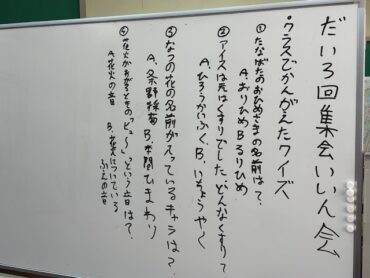 だい3回集会いいん会
クラスでかんがえたクイズ
①たなばたのおひめさまの名前は?
A.おりひめ B.るりひめ
②アイスは元はくすりでした。どんなくすり?
A.ひろうかいふく B.いちょうやく
③なつの花の名前が入っているキャラは?
A. 条野採菊 B.本間ひまわり
④花火があがるときの「ピュ〜」という音は?
A.花火の音 B.花火についている
ふえの音